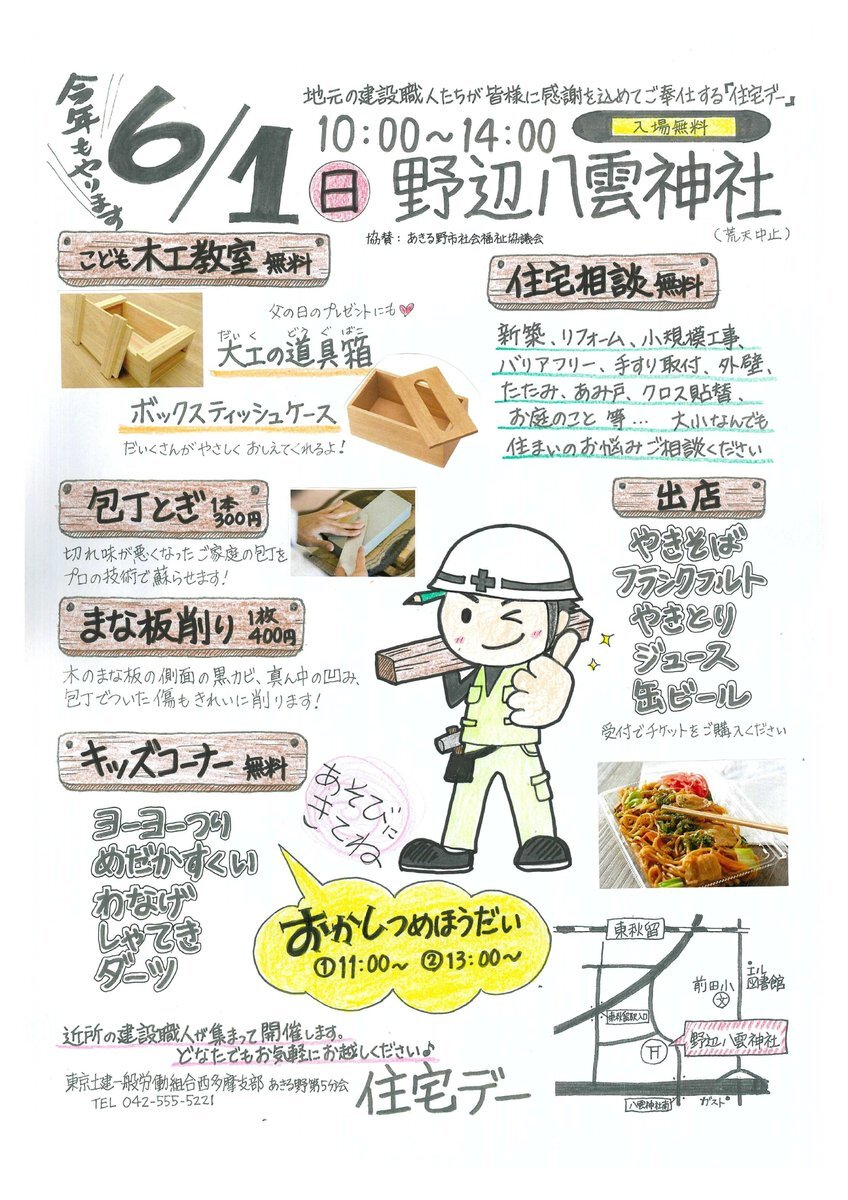 今年もやります
6/1
地元の建設職人たちが皆様に感謝を込めてご奉仕する『住宅デー』
10:00～14:00
入場無料
日
野辺八雲神社
協賛：あきる野市社会福祉協議会
(荒天中止)
こども木工教室 無料
父の日のプレゼントにも
だいく どうぐばこ
大工の道具箱
ボックスティッシュケース
だいくさんがやさしくおしえてくれるよ！
住宅相談 無料
新築、リフォーム、小規模工事、
バリアフリー、手すり取付、外壁、
たたみ、あみ戸、クロス貼替、
お庭のこと 等… 大小なんでも
住まいのお悩みご相談ください
包丁とぎ 1本 300円
切れ味が悪くなったご家庭の包丁を
プロの技術で蘇らせます！
まな板削り 1枚 400円
木のまな板の側面の黒カビ、真ん中の凹み、
包丁でついた傷もきれいに削ります！
出店
やきそば
フランクフルト
やきとり
ジュース
缶ビール
受付でチケットをご購入ください
キッズコーナー 無料
ヨーヨーつり
めだかすくい
わなげ
しゃてき
ダーツ
あそびに
きてね
おかしつめほうだい
①11:00～ ②13:00～
東秋留
エル
図書館
前田小
文
東秋留駅入口
野辺八雲神社
八雲神社南
ガスト
近所の建設職人が集まって開催します。
どなたでもお気軽にお越しください♪
東京土建一般労働組合西多摩支部 あきる野第5分会
TEL 042-555-5221
住宅デー